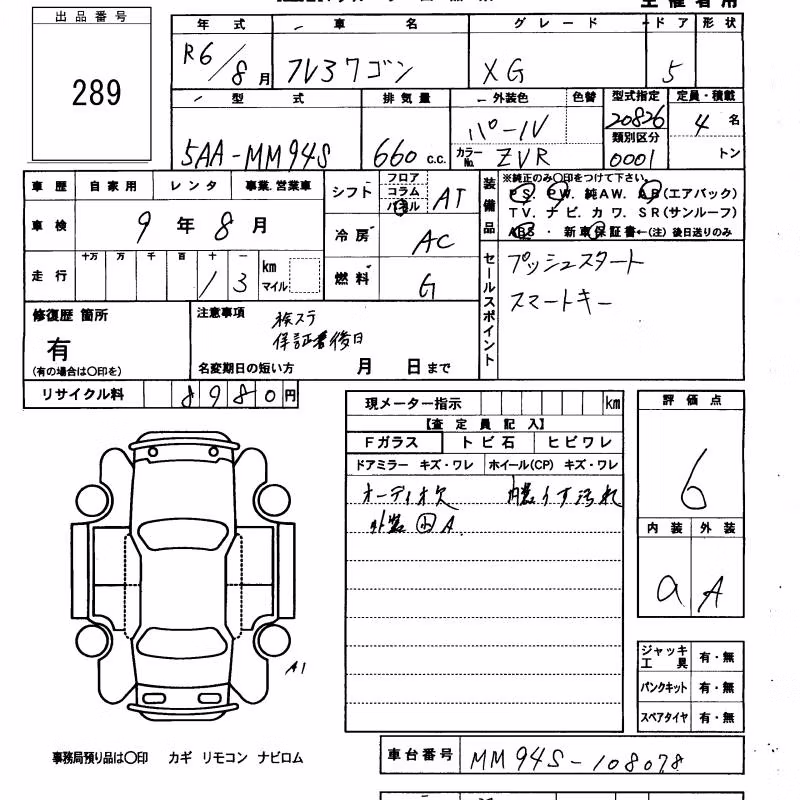 出品番号
289
年式 車名 グレード ドア 形状
R6/8月 フレヨワゴン XG 5
型式 排気量 外装色 色替 型式指定 定員・積載
5AA-MM94S 660 c.c. パール 20826 4名
カラーNo. ZVR 類別区分 0001 トン
車歴 自家用 レンタ 事業.営業車
車検 9年8月
走行 十万 万 千 百 十 一 13 km マイル
シフト フロア コラム パネル AT
冷房 AC
燃料 G
装備品 ※純正のみ〇印をつけて下さい。
PS. PW. 純AW. AB(エアバック)
TV. ナビ. カワ. SR(サンルーフ)
ABS ・ 新車保証書←(注)後日送りのみ
セールスポイント
プッシュスタート
スマートキー
修復歴 箇所
有
(有の場合は〇印を)
注意事項
検ステ
保証書後日
名変期日の短い方 月 日まで
リサイクル料 8980円
現メーター指示 km
【査定員記入】
Fガラス トビ石 ヒビワレ
ドアミラー キズ・ワレ ホイール(CP) キズ・ワレ
オーディオ欠 内装うす汚れ
外装 小 A
評価点
6
内装 外装
a A
A1
ジャッキ工具 有・無
パンクキット 有・無
スペアタイヤ 有・無
事務局預り品は〇印 カギ リモコン ナビロム
車台番号 MM94S-108078